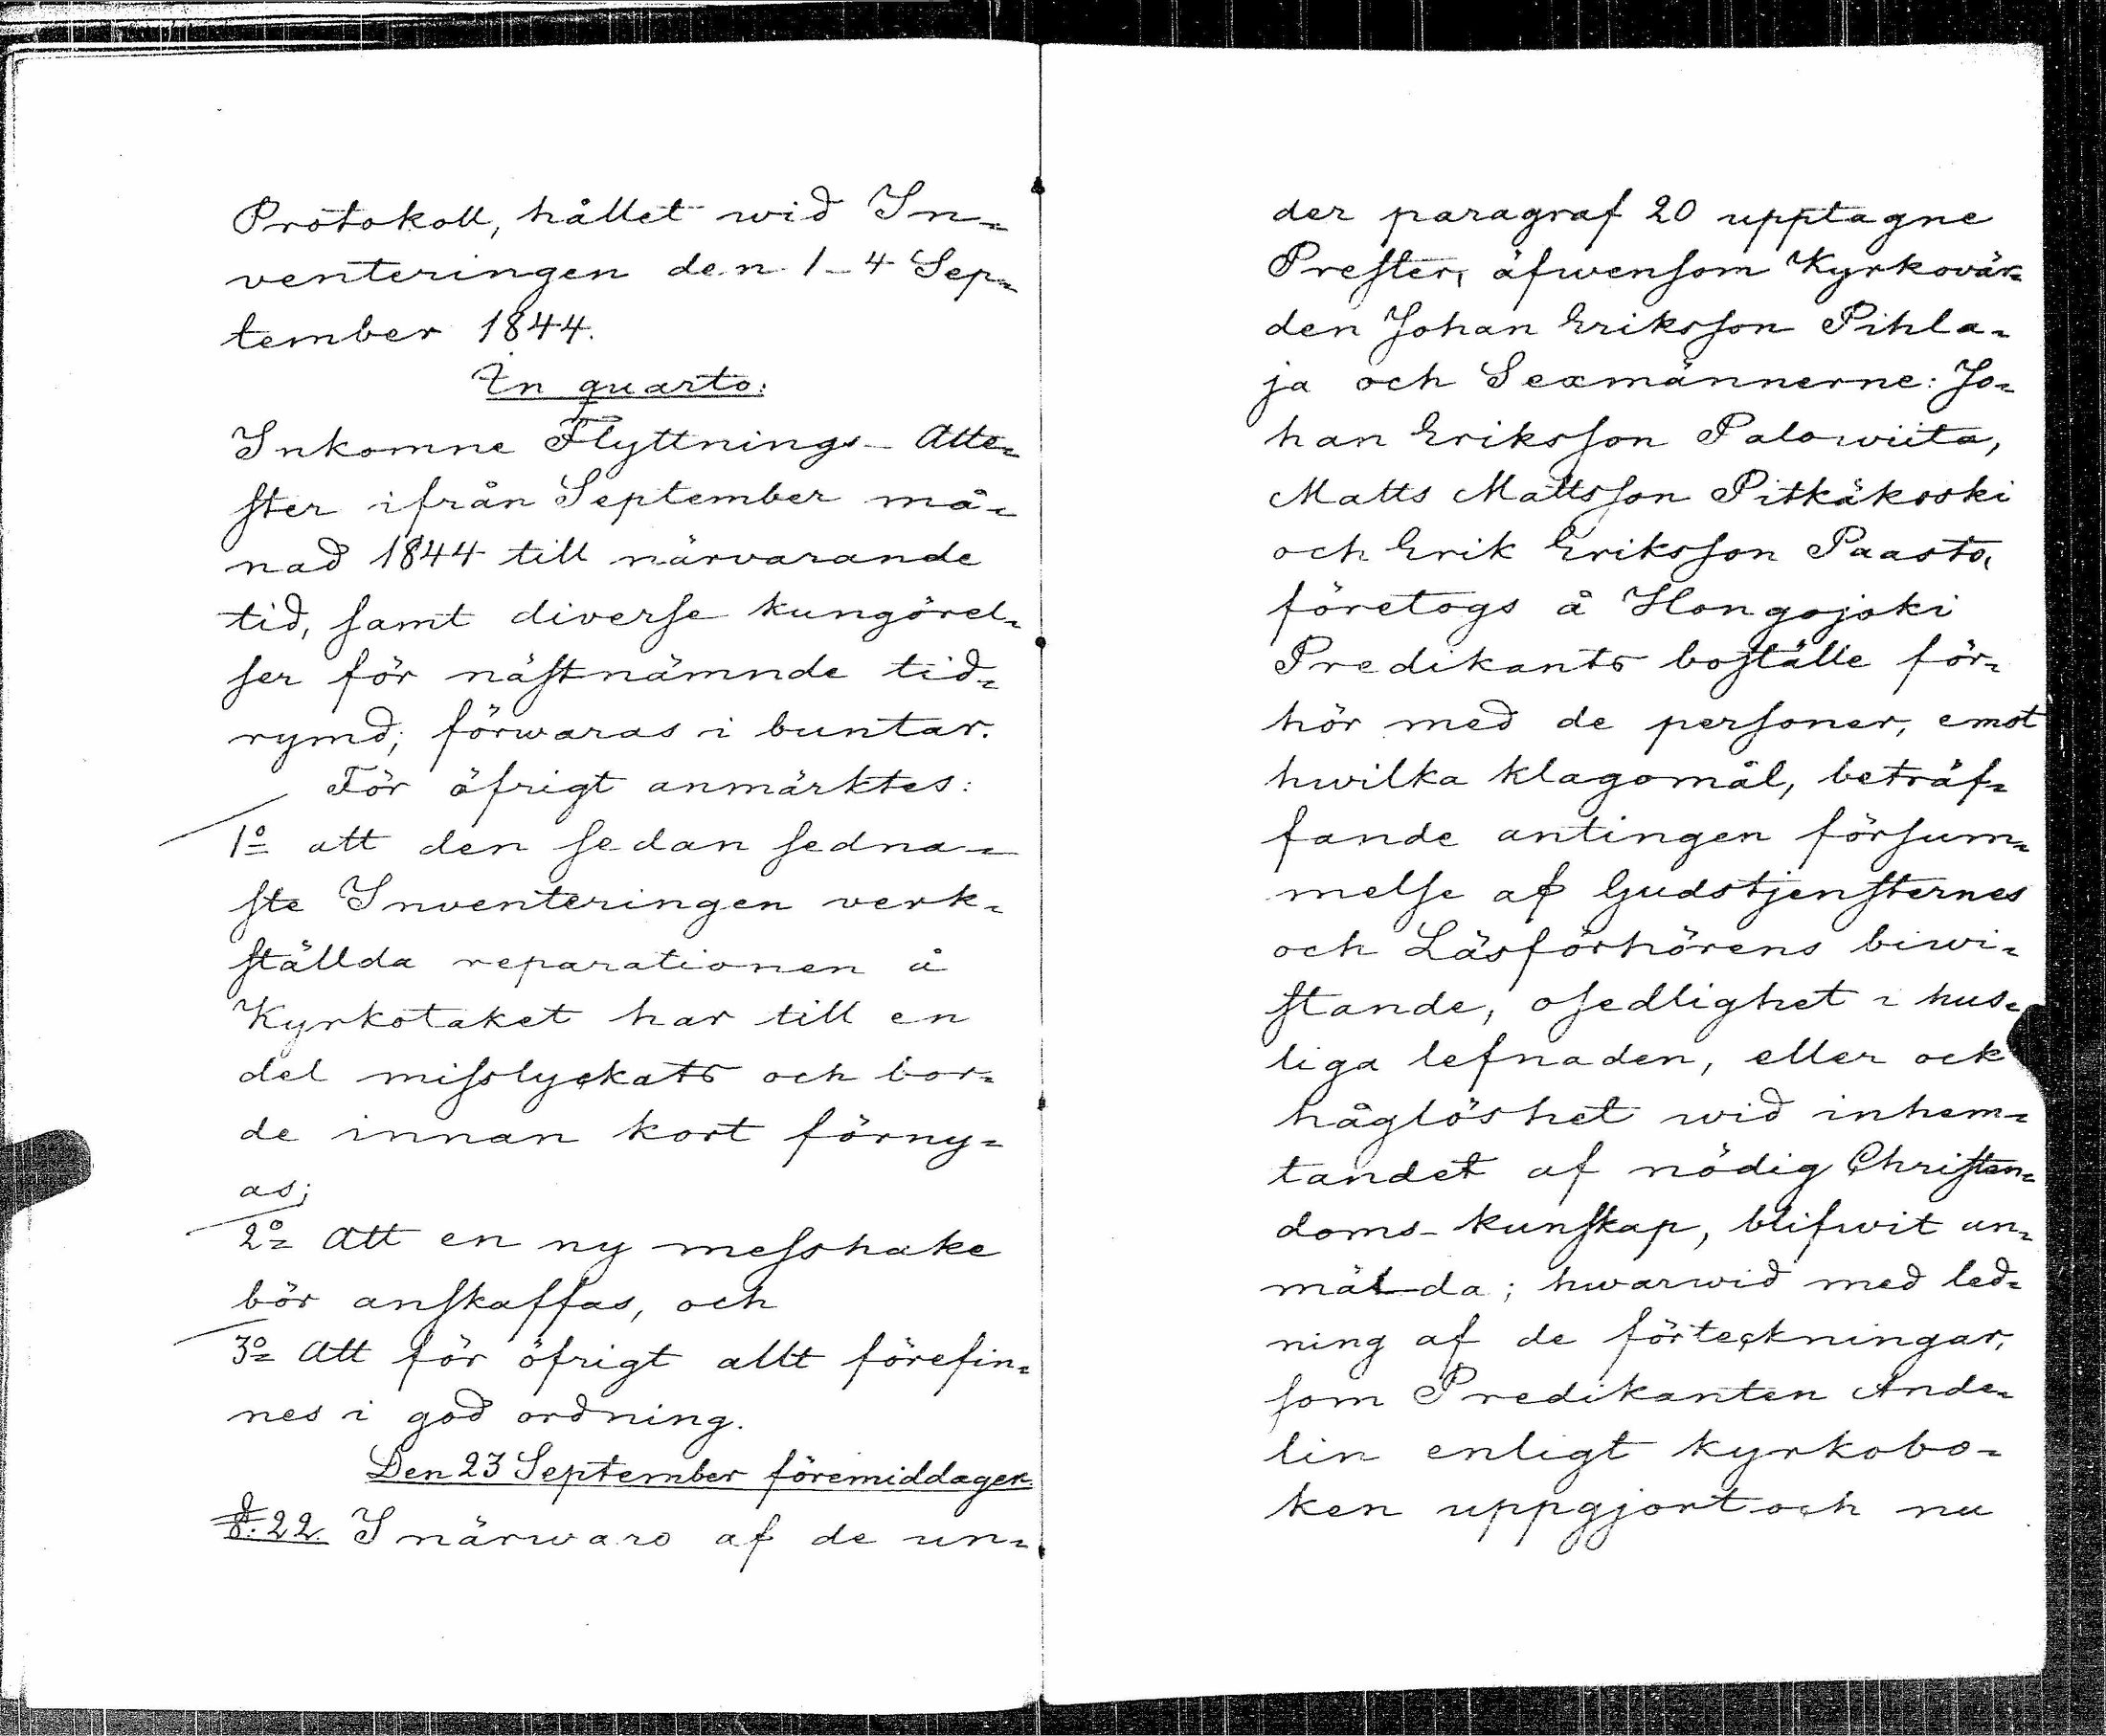 Protokoll, hållet wid In=
venteringen den 1-4 Sep=
tember 1844.
In quarto:
Inkomne Flyttnings-Atte=
ster ifrån September må=
nad 1844 till närvarande
tid, samt diverse kungörel=
ser för nästnämnde tid=
rymd, förwaras i buntar.
För öfrigt anmärktes:
1º att den sedan sedna=
ste Inventeringen verk=
ställda reparationen å
Kyrkotaket har till en
del misslyckats och bor=
de innan kort förny=
as;
2º Att en ny messhake
bör anskaffas, och
3º Att för öfrigt allt förefin=
nes i god ordning.
Den 23 September föremiddagen.
§. 22. I närwaro af de un=
der paragraf 20 upptagne
Prester, äfwensom Kyrkovär=
den Johan Eriksson Pihla=
ja och Sexmännerne: Jo=
han Eriksson Palowiita,
Matts Mattsson Pitkäkoski
och Erik Eriksson Paasto,
företogs å Hongojoki
Predikants boställe för=
hör med de personer, emot
hwilka klagomål, beträf=
fande antingen försum=
melse af Gudstjensternes
och Läsförhörens biwi=
stande, osedlighet i hus=
liga lefnaden, eller ock
håglöshet wid inhem=
tandet af nödig Christen=
doms-kunskap, blifwit an=
mälda; hwarwid med led=
ning af de förteckningar,
som Predikanten Ande=
lin enligt kyrkobo=
ken uppgjort och nu